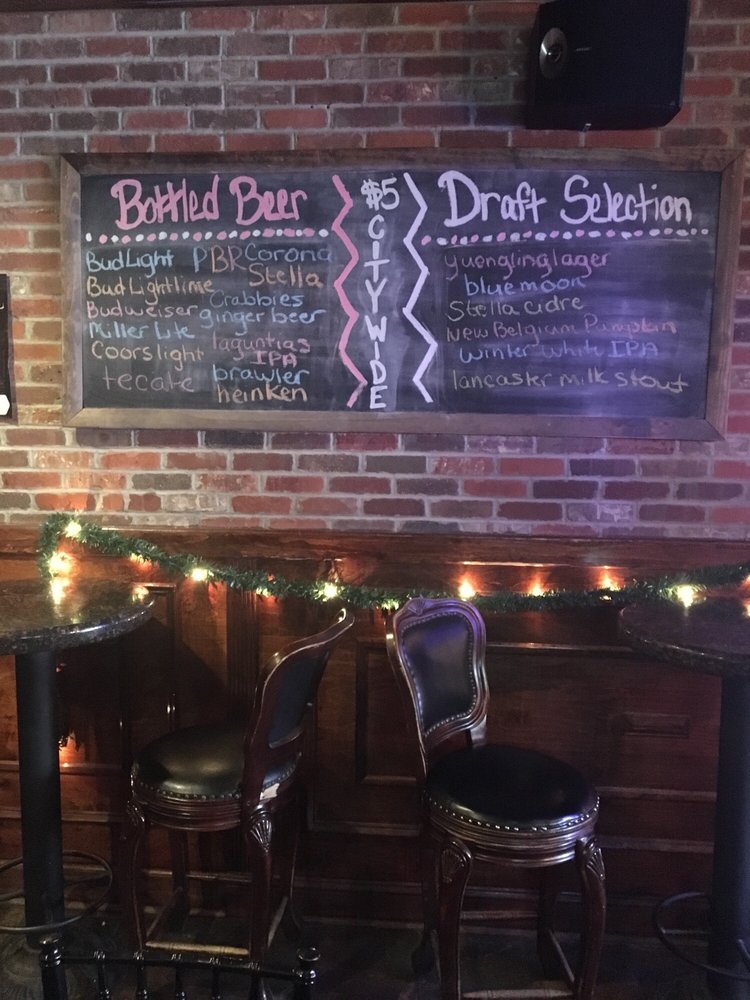 Bottled Beer
Bud Light
Bud Lightlime
Budweiser
Miller Lite
Coorslight
tecate
PBR
Corona
Stella
Crabbies
ginger beer
laguntias
IPA
brawler
heinken
$5
CITYWIDE
Draft Selection
yuenglinglager
bluemoon
Stella cidre
New Belgium Pumpkin
Winter White IPA
lancaster milk stout